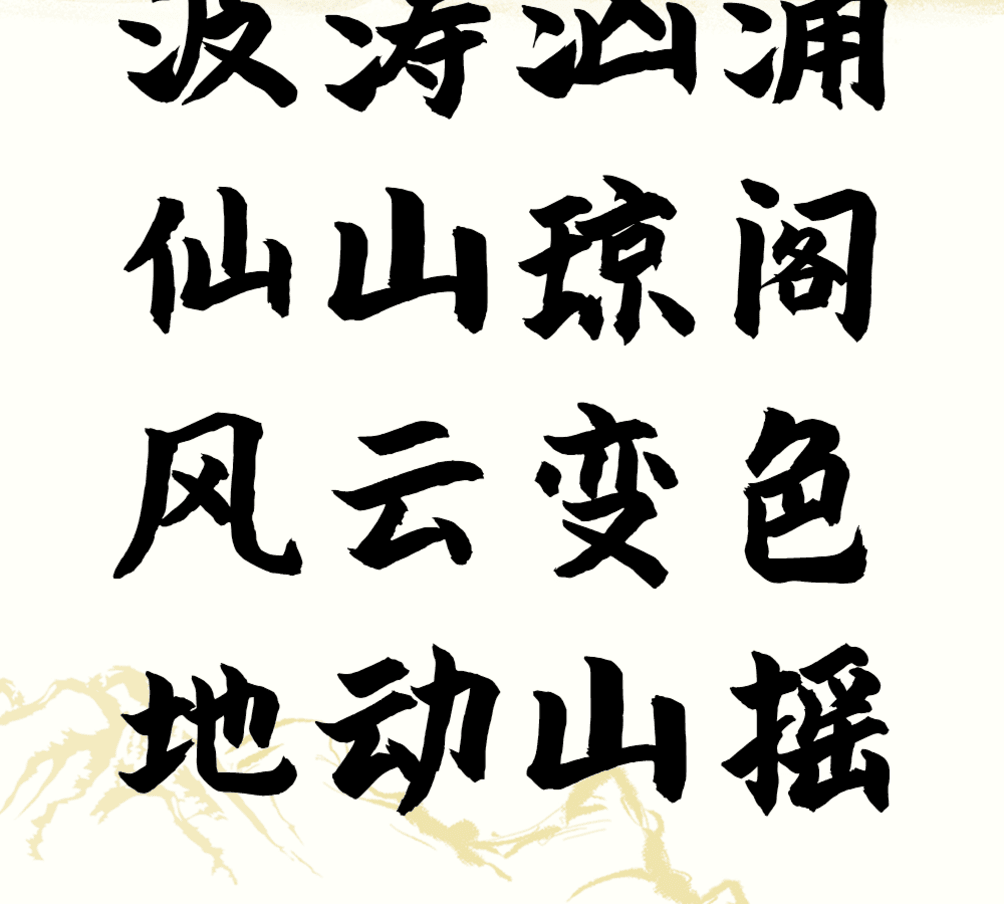 波涛汹涌
仙山琼阁
风云变色
地动山摇